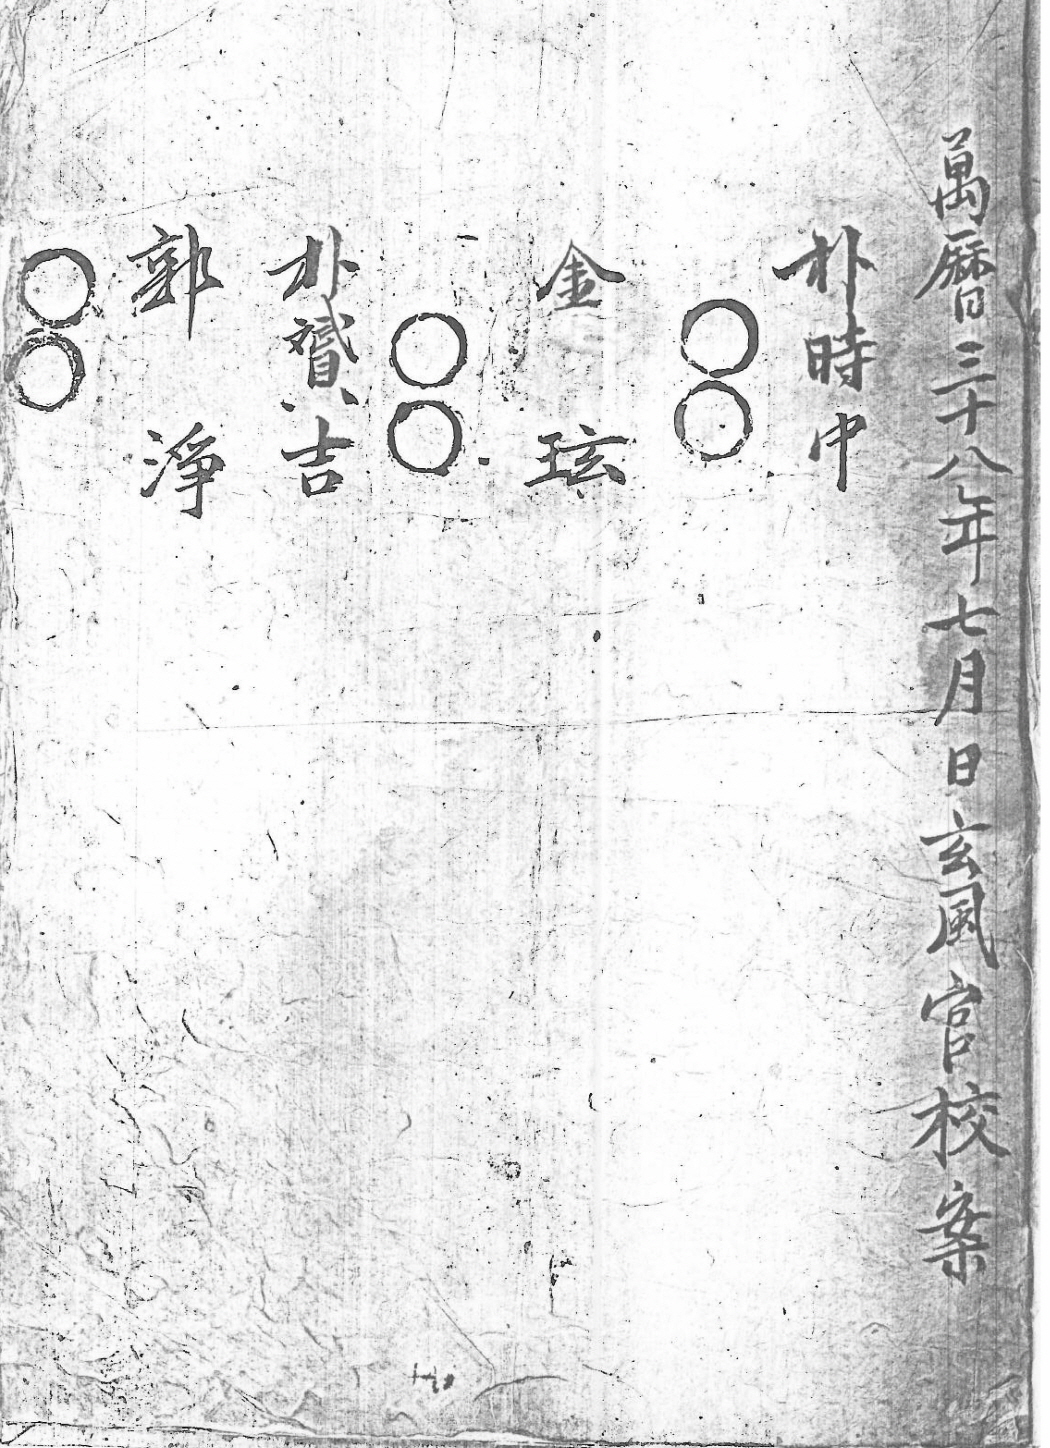 萬曆三十八年七月日玄風官校案
朴時中
○○
金玹
○○
朴贇吉
郭淨
○○